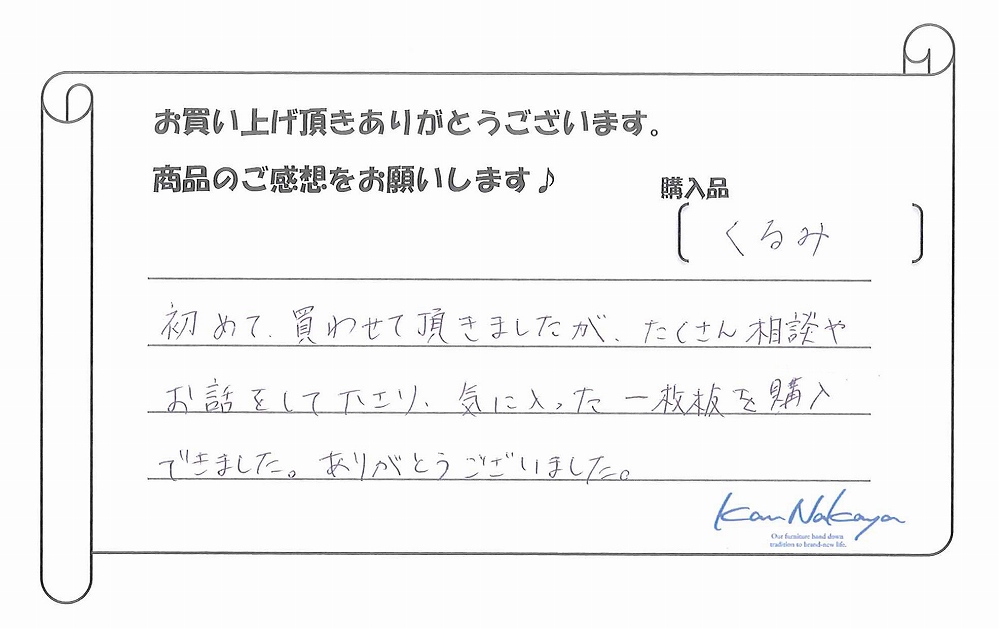 お買い上げ頂きありがとうございます。
商品のご感想をお願いします♪
購入品
くるみ
初めて、買わせて頂きましたが、たくさん相談や
お話をして下さり、気に入った一枚板を購入
できました。ありがとうございました。
KanNakaya
Our furniture hand down
tradition to brand-new life.